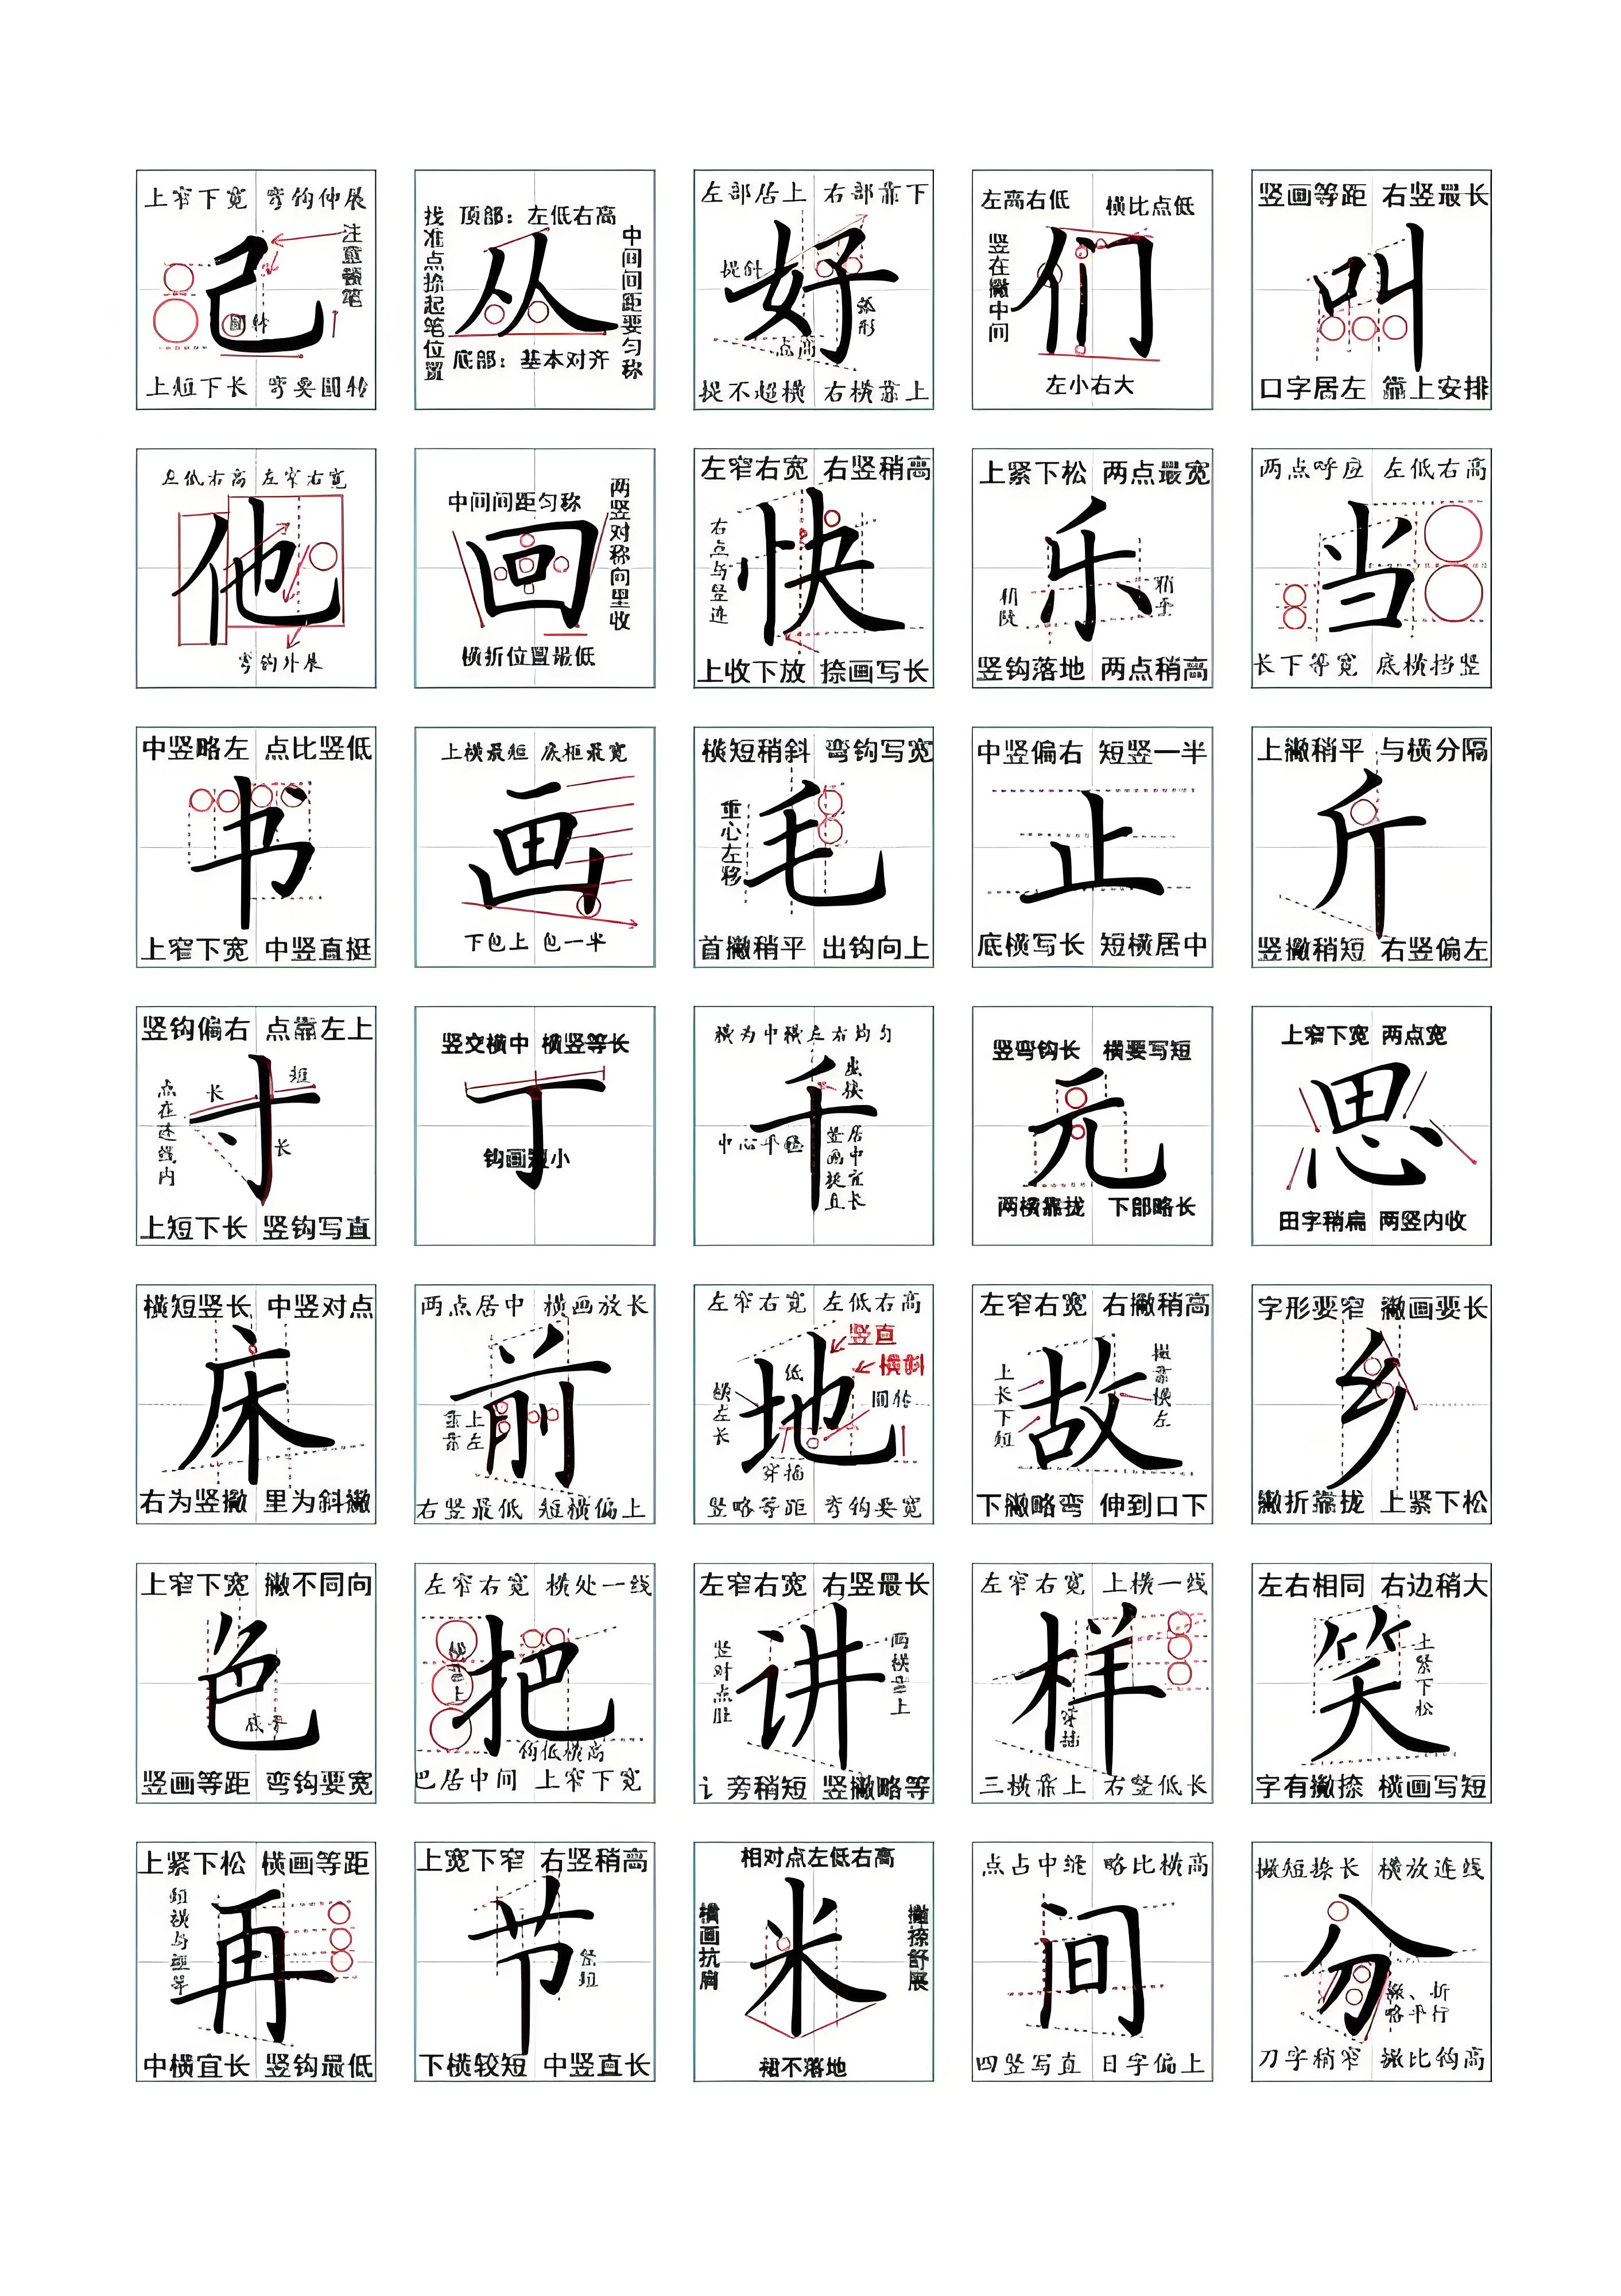 上窄下宽 弯钩伸展
己
圆转
上短下长 弯要圆转
顶部：左低右高
找准点捺起笔位置
从
中间间距要匀称
底部：基本对齐
左部居上 右部靠下
好
弧形
点高
提不超横 右横靠上
左高右低 横比点低
竖在撇中间
们
左小右大
竖画等距 右竖最长
叫
口字居左 靠上安排
左低右高 左窄右宽
他
弯钩外展
中间间距匀称
回
两竖对称向里收
横折位置最低
左窄右宽 右竖稍高
右点与竖连
快
上收下放 捺画写长
上紧下松 两点最宽
乐
竖钩落地 两点稍高
两点呼应 左低右高
当
长下等宽 底横挡竖
中竖略左 点比竖低
书
上窄下宽 中竖直挺
上横最短 底框最宽
画
下包上 包一半
横短稍斜 弯钩写宽
重心左移
毛
首撇稍平 出钩向上
中竖偏右 短竖一半
止
底横写长 短横居中
上撇稍平 与横分隔
斤
竖撇稍短 右竖偏左
竖钩偏右 点靠左上
点在连线内
长
短
寸
长
上短下长 竖钩写直
竖交横中 横竖等长
丁
钩画短小
横为中横左右均匀
千
竖画挺直
居中宜长
竖弯钩长 横要写短
元
两横靠拢 下部略长
上窄下宽 两点宽
思
田字稍扁 两竖内收
横短竖长 中竖对点
床
右为竖撇 里为斜撇
两点居中 横画放长
前
右竖最低 短横偏上
左窄右宽 左低右高
竖直
横斜
低
圆转
横左长
地
穿插
竖略等距 弯钩要宽
左窄右宽 右撇稍高
上长下短
故
撇靠横左
下撇略弯 伸到口下
字形要窄 撇画要长
乡
撇折靠拢 上紧下松
上窄下宽 撇不同向
色
底平
竖画等距 弯钩要宽
左窄右宽 横处一线
把
钩低横高
巴居中间 上窄下宽
左窄右宽 右竖最长
竖对点肚
讲
两横靠上
讠旁稍短 竖撇略等
左窄右宽 上横一线
样
穿插
三横靠上 右竖低长
左右相同 右边稍大
笑
上紧下松
字有撇捺 横画写短
上紧下松 横画等距
再
中横宜长 竖钩最低
上宽下窄 右竖稍高
节
下横较短 中竖直长
相对点左低右高
横画抗肩
米
撇捺舒展
点占中缝 略比横高
间
四竖写直 日字偏上
撇短捺长 横放连线
分
撇、折
略平行
刀字稍窄 撇比钩高